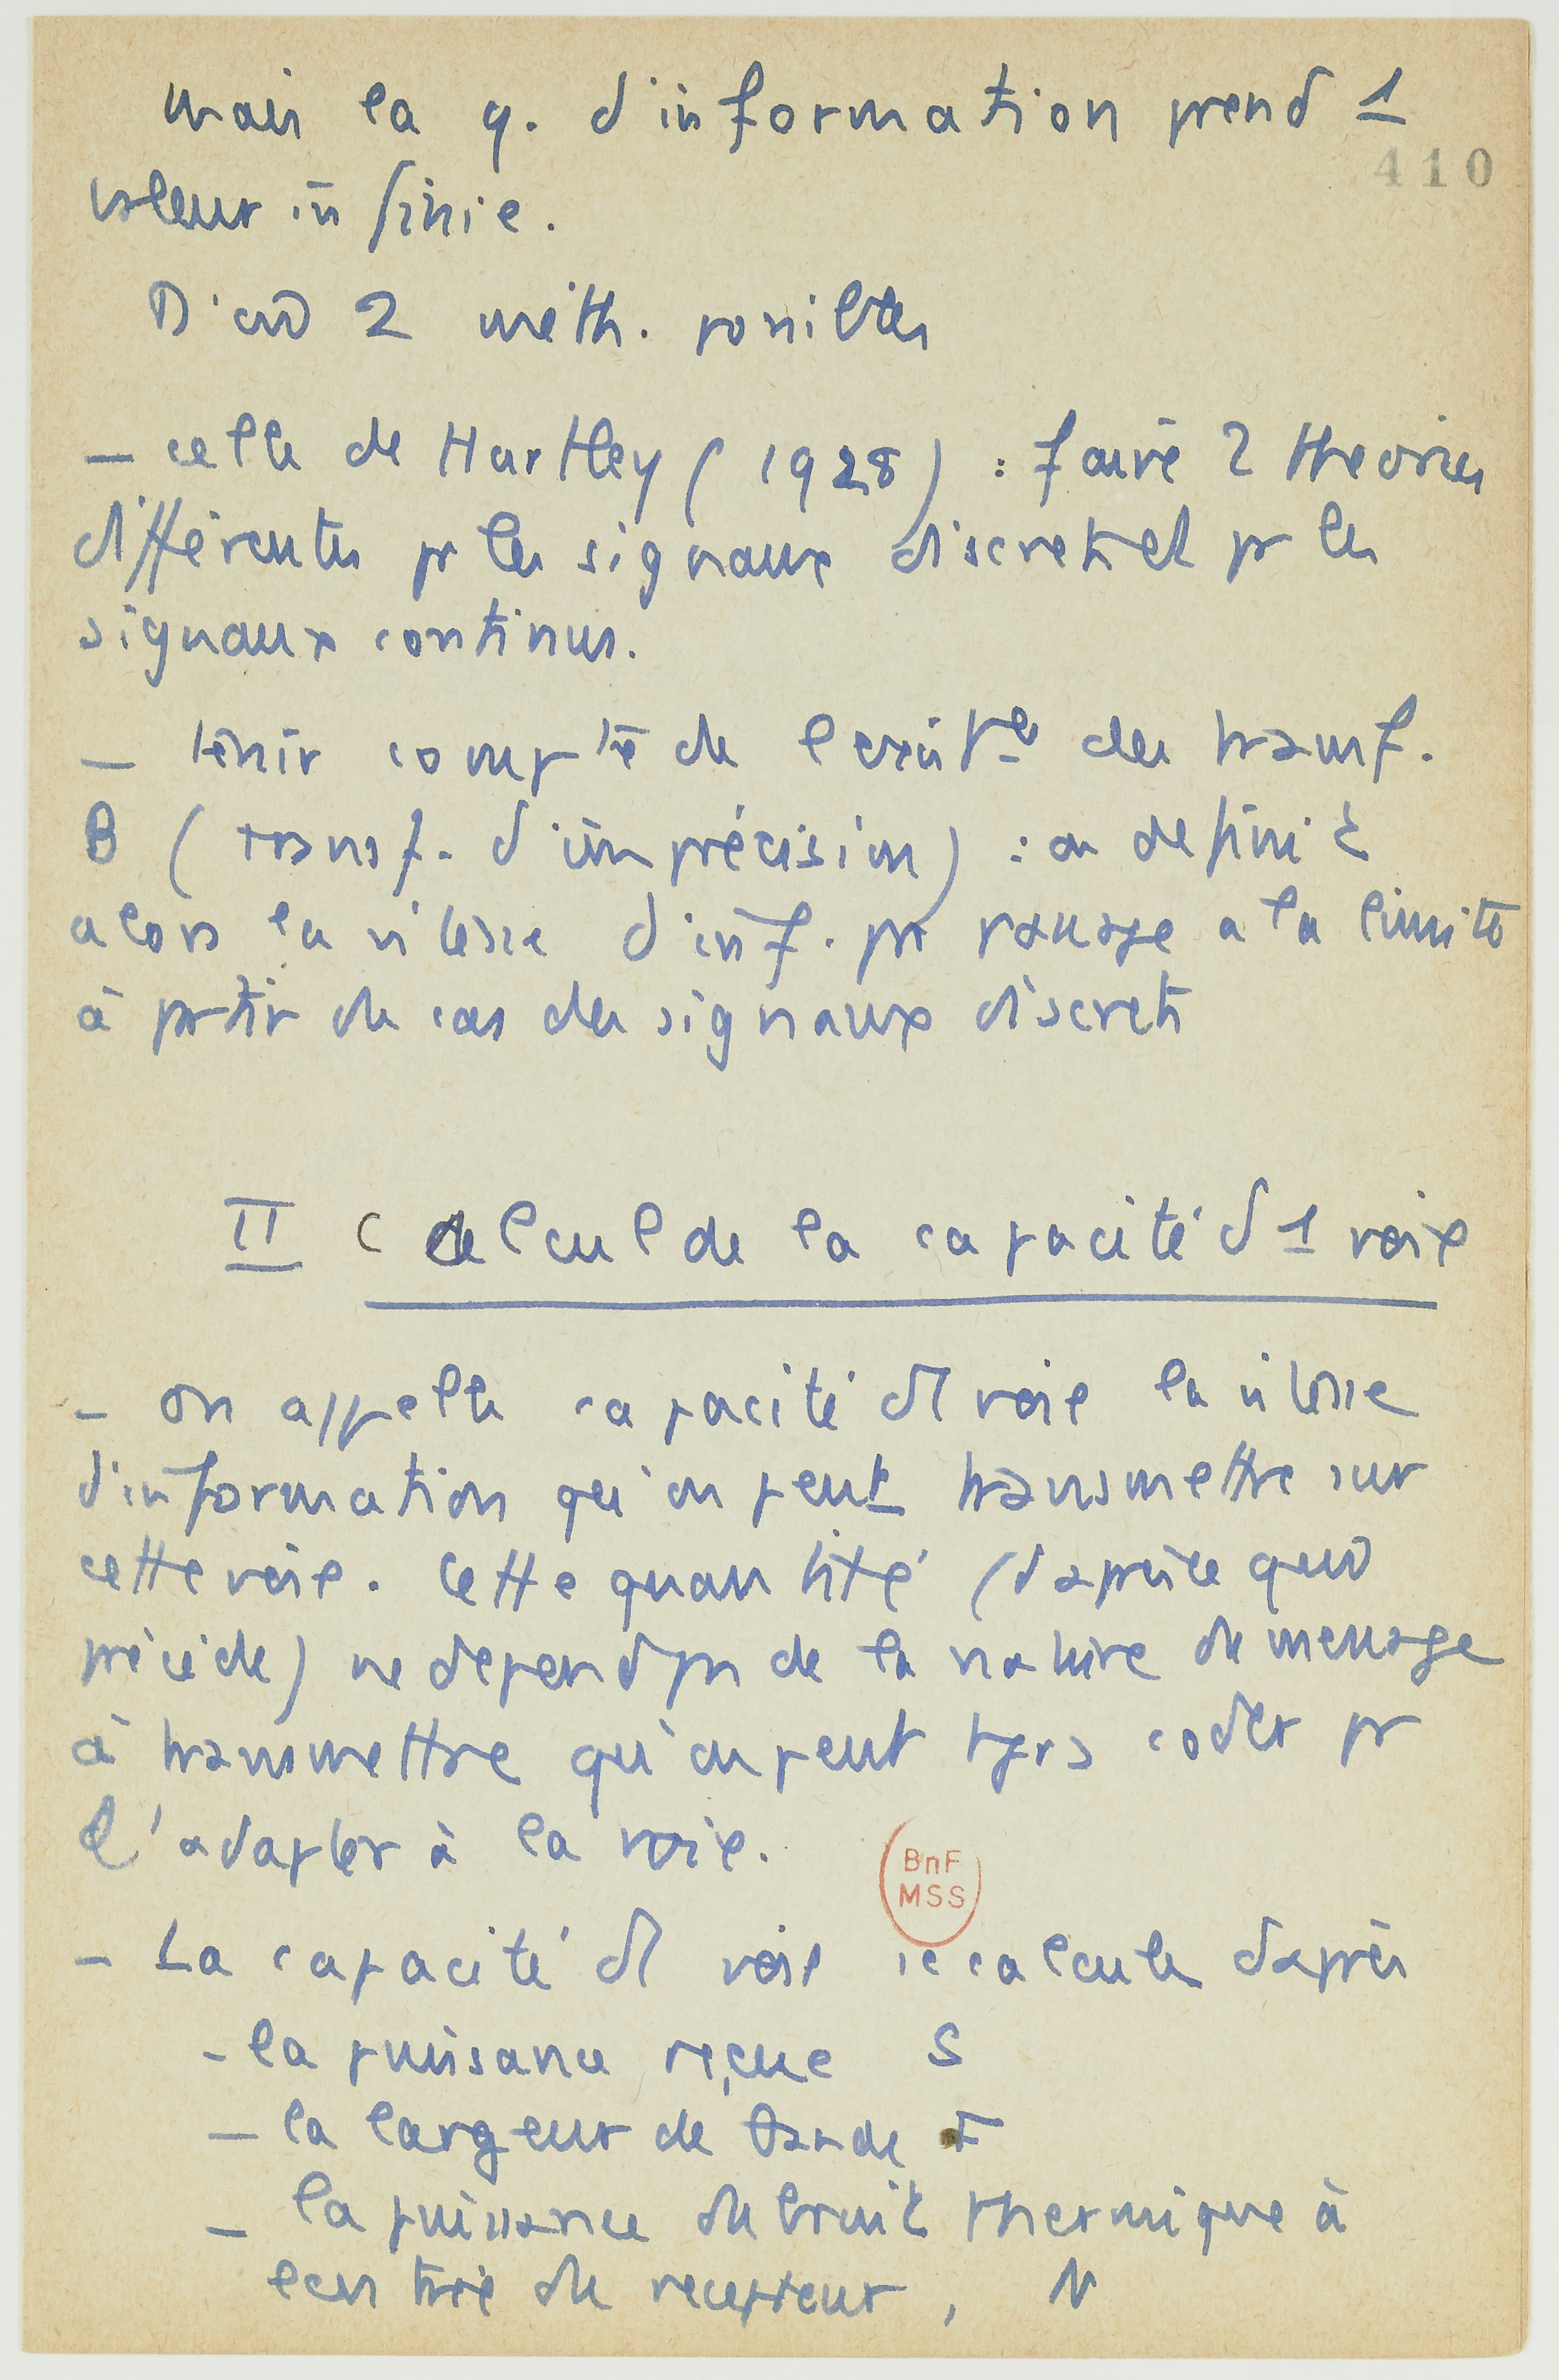 mais la q. d'information prend 1
410
valeur infinie.
D'où 2 méth. possibles
– celle de Hartley (1928) : faire 2 theories
différentes pr les signaux discrets et pr les
signaux continus.
– tenir compte de l'exist ce des transf.
B (transf. d'imprécision) : on définit
alors la vitesse d'inf. par passage a la limite
à partir du cas des signaux discrets
II Calcul de la capacité d 1 voie
– on appelle capacité d1 voie la vitesse
d'information qu'on peut transmettre sur
cette voie. Cette quantité (d'après ce qui
précède) ne depend pas de la nature du message
à transmettre qu'on peut tjrs coder pr
l'adapter à la voie.
BnF
MSS
– La capacité d1 voie se calcule d'après
– la puissance reçue S
– la largeur de bande F
– la puissance du bruit thermique à
l'entrée du recepteur, N